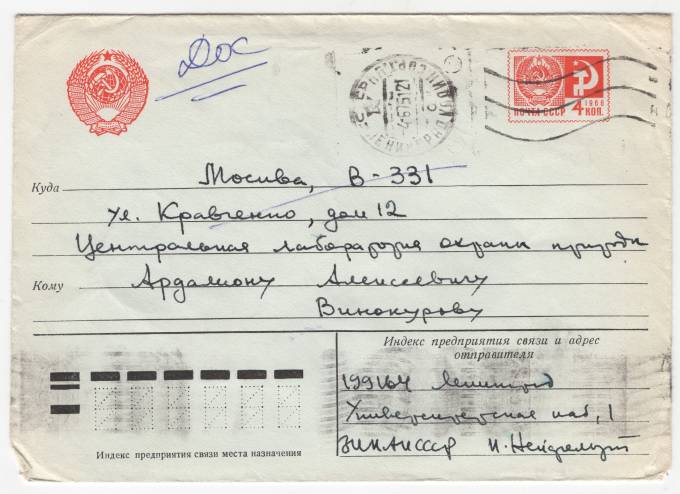 Дос
ПОЧТА СССР
4 КОП.
1966
Куда
Москва, В-331
ул. Кравченко, дом 12
Центральная лаборатория охраны природы
Кому
Ардалиону Алексеевичу
Винокурову
Индекс предприятия связи и адрес
отправителя
199164 Ленинград
Университетская наб, 1
ЗИН АН СССР И.
Индекс предприятия связи места назначения